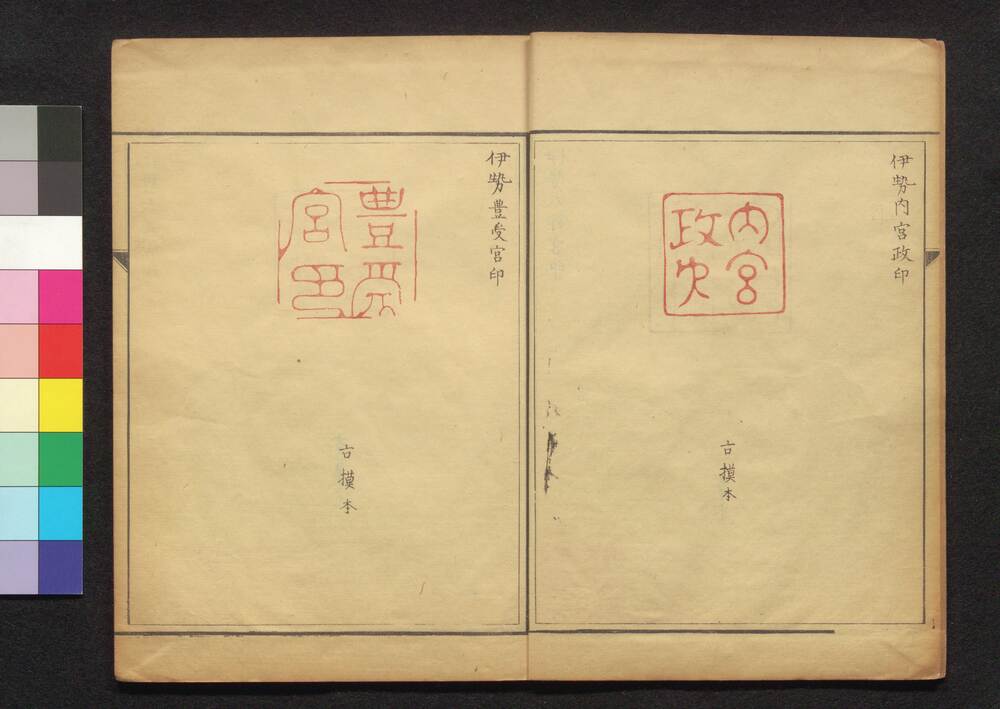 伊勢内宮政印
内宮
政印
古摸本
伊勢豊受宮印
豊受
宮印
古摸本